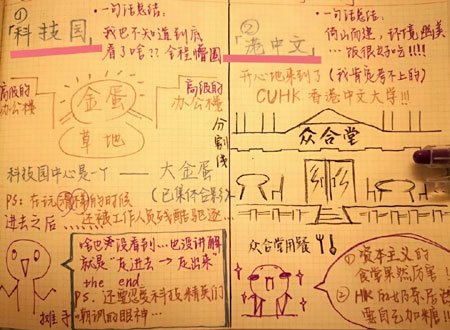 ①
「科技园」
一句话总结:
我也不知道到底
看了啥?? 全程懵圈
高级的
办公楼
金蛋
草地
高级的
办公楼
科技园中心是一个 —— 大金蛋
PS: 在玩
的时候
(已集体
进去之后……还被工作人员残酷驱逐…
啥也没看到…也没讲解
就是“左进去→右出来”
the end.
PS. 还要忍受科技精英们
嘲讽的眼神…
分割线
②
「港中文」
一句话总结:
倚山而建,环境幽美
…饭很好吃!!!!
开心地来到了(我肯定考不上的)
CUHK 香港中文大学!!!
众合堂
众合堂用餐
① 资本主义的
食堂果然厉害!
② HK的奶茶居然
要自己加糖!!